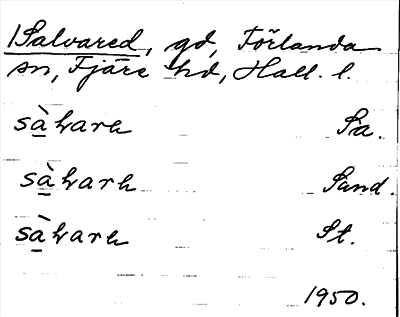 Salvared, gd, Förlanda
sn, Fjäre hd, Hall. l.
sà̱varɐ Sa.
sà̱varɐ Sand.
sà̱varɐ St.
1950.